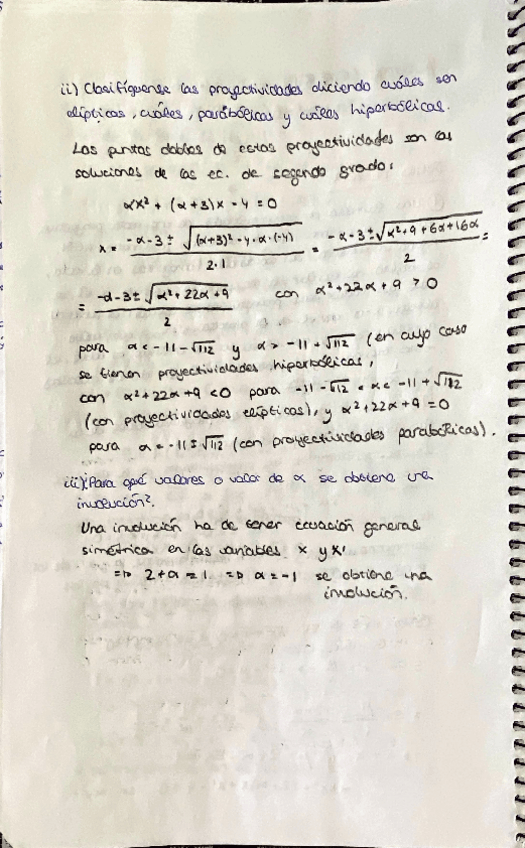 ii) Clasifíquense las proyectividades diciendo cuáles son
elípticas, cuáles, parabólicas y cuáles hiperbólicas.
Los puntos dobles de estas proyectividades son las
soluciones de las ec. de segundo grado:
αx² + (α+3)x - 4 = 0
x = (-α-3 ± √((α+3)² - 4·α·(-4))) / (2·1) = (-α-3 ± √(α²+9+6α+16α)) / 2 =
= (-α-3 ± √(α²+22α+9)) / 2 con α²+22α+9 > 0
para α < -11-√112 y α > -11+√112 (en cuyo caso
se tienen proyectividades hiperbólicas,
con α²+22α+9 < 0 para -11-√112 < α < -11+√112
(con proyectividades elípticas), y α²+22α+9 = 0
para α = -11±√112 (con proyectividades parabólicas).
iii) ¿Para qué valores o valor de α se obtiene una
involución?
Una involución ha de tener ecuación general
simétrica en las variables x y x'
=> 2+α = 1 => α = -1 se obtiene una
involución.